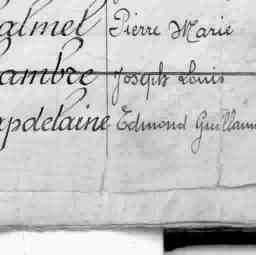 almel Pierre Marie
ambre Joseph Louis
apdelaine Edmond Guillaum